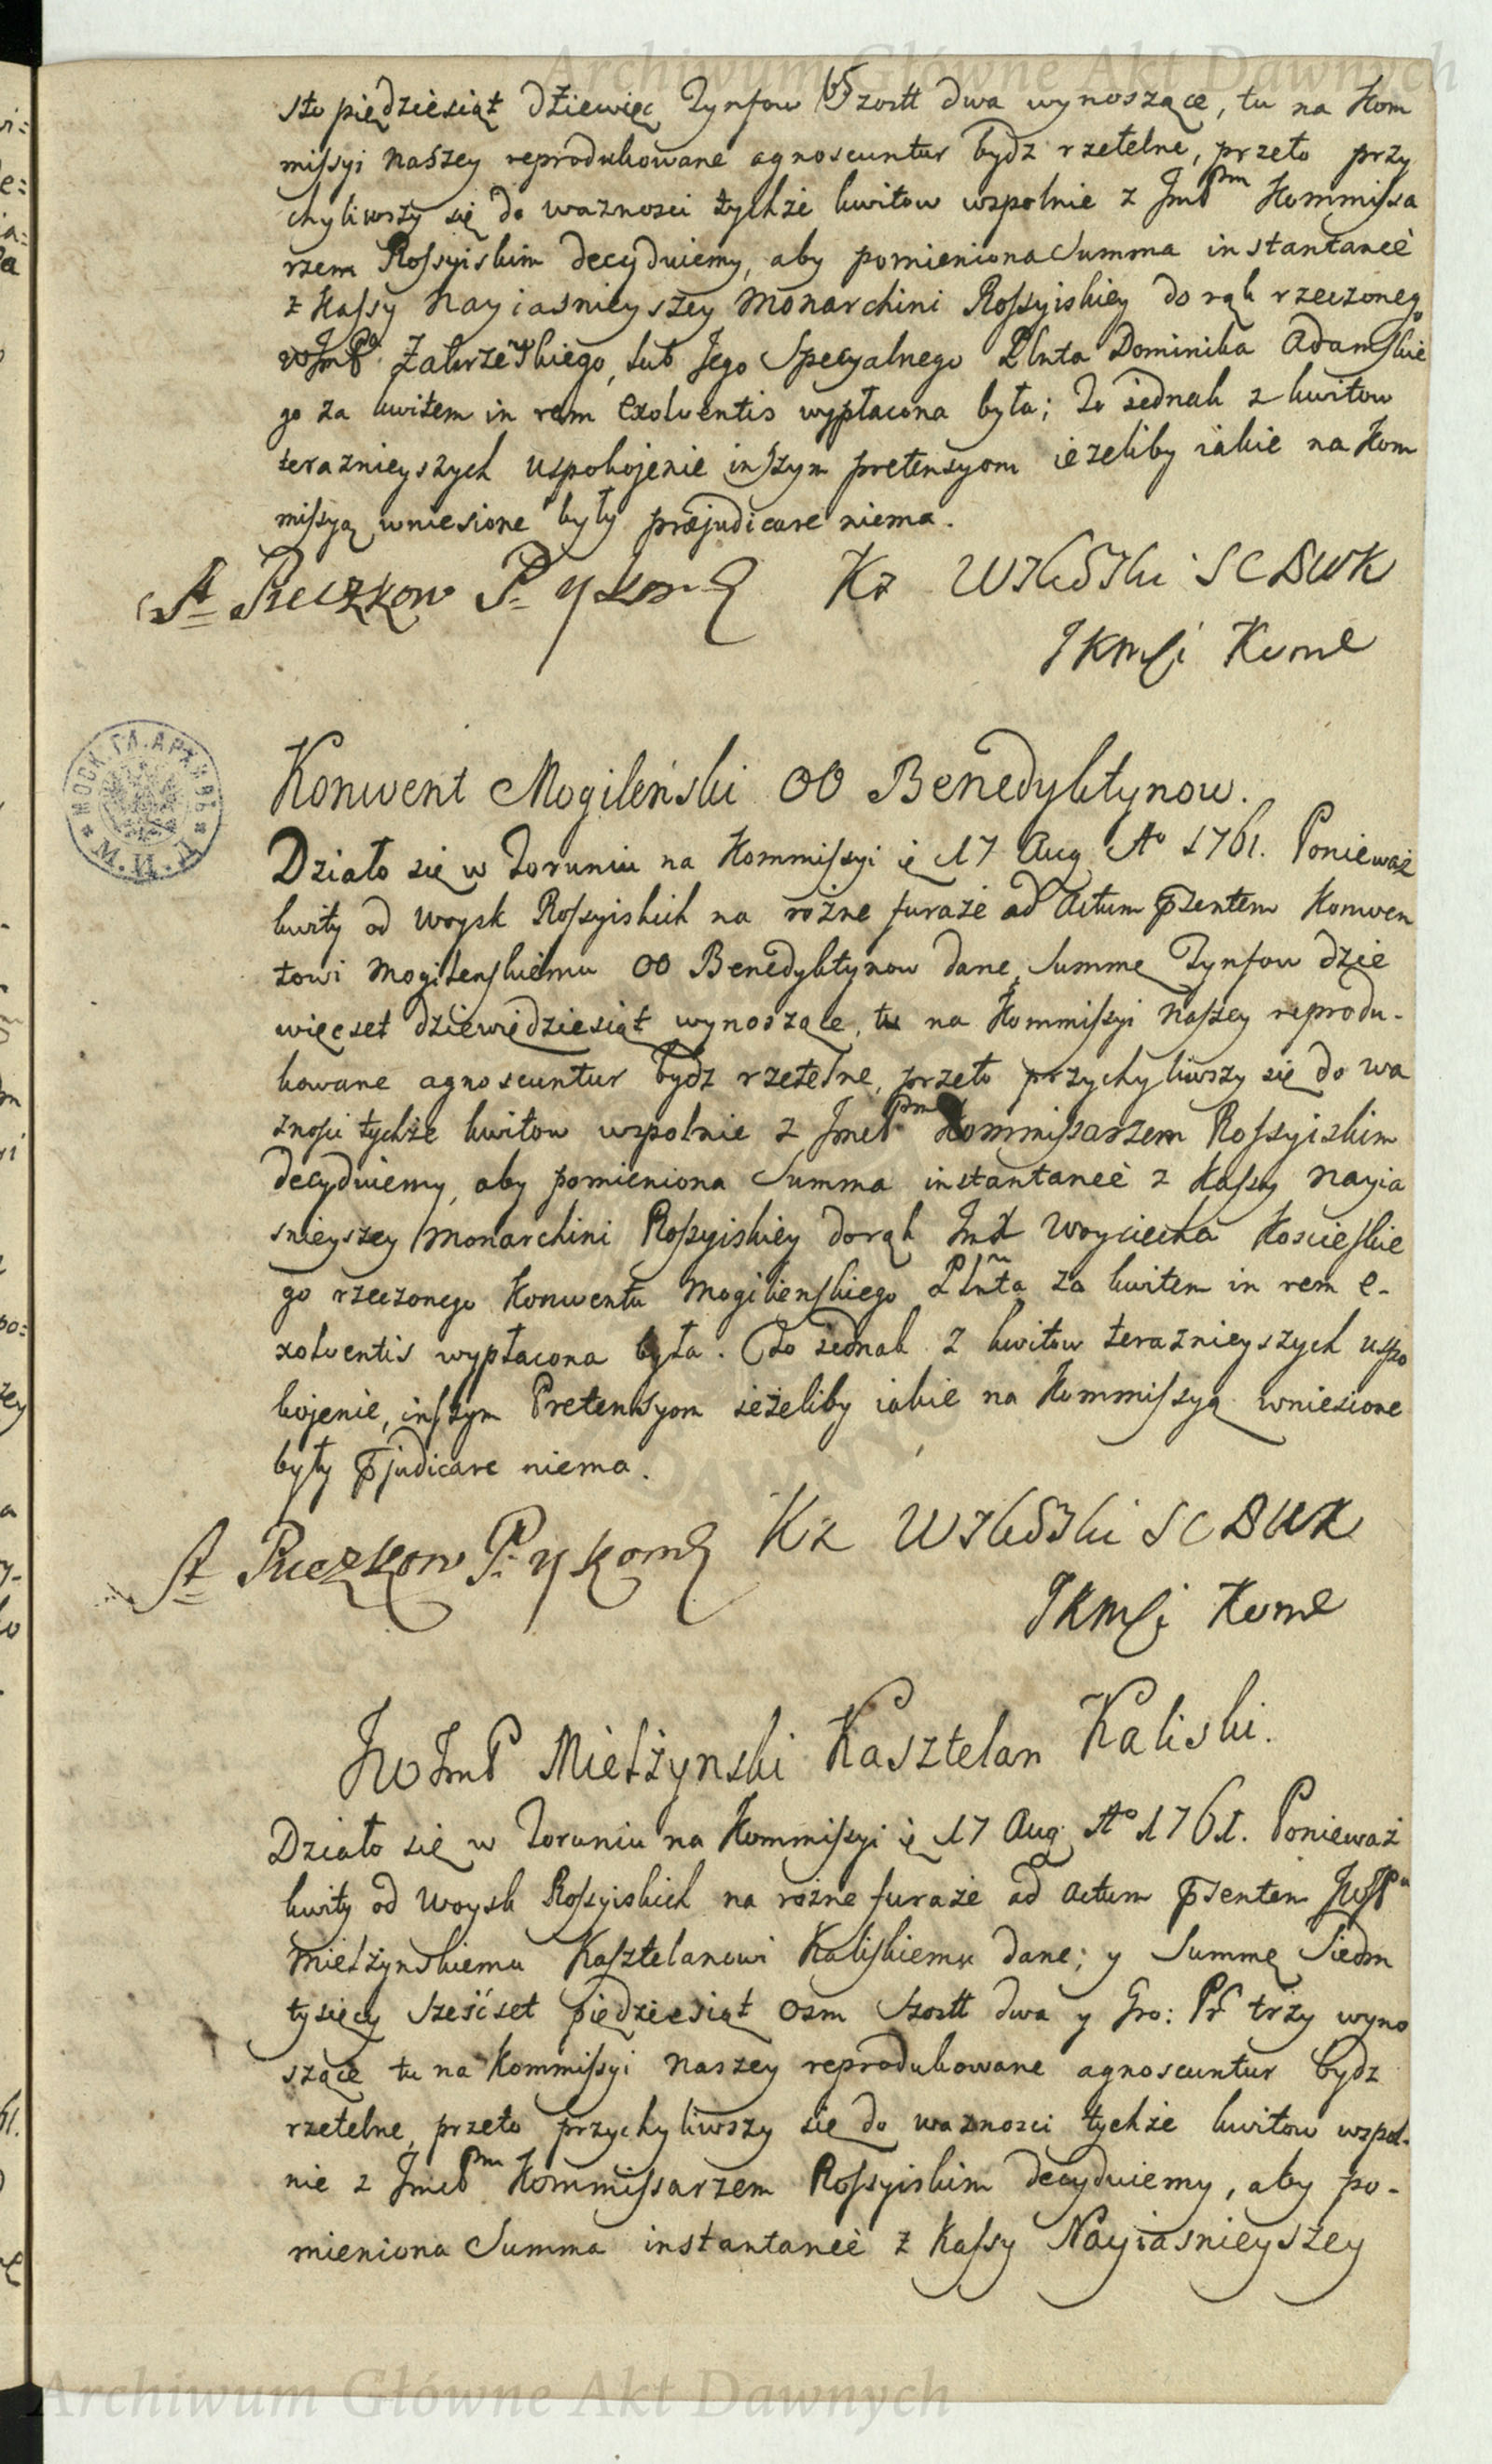 Archiwum Główne Akt Dawnych
65
sto piędziesiąt dziewięc Tynfow Szostt dwa wynoszące, tu na Kom
missyi naszey reprodukowane agnoscuntur bydz rzetelne, przeto przy
chyliwszy się do waznosci tychże kwitow wspolnie z JmP. Pm Kommissa
rzem Rossyiskim decyduiemy, aby pomieniona Summa instantaneè
z Kassy Nayiasnieyszey Monarchini Rossyiskiey do rąk rzeczoneg
o WJmPa Zakrzewskiego, lub Jego Specyalnego Plnta Dominika Adamskie
go za kwitem in rem exolventis wypłacona była; To iednak z kwitow
teraznieyszych uspokojenie inszym pretensyom ieżeliby iakie na Kom
missyą wniesione były præjudicare niema.
St Puczkow P. y Kom
JKMsi Kome
МОСК. ГЛ. АРХИВЪ * М. И. Д. *
Konwent Mogileński OO Benedyktynow.
Działo się w Toruniu na Kommissyi ię 17 Aug Ao 1761. Ponieważ
kwity od Woysk Rossyiskich na rożne furaże ad Actum psentem Konwen
towi Mogilenskiemu OO Benedyktynow dane, Summę Tynfow dzie
więcset dziewiędziesiąt wynoszące, tu na Kommissyi naszey reprodu-
kowane agnoscuntur bydz rzetelne, przeto przychyliwszy się do wa
znosci tychże kwitow wspolnie z JmcP. Pm Kommissarzem Rossyiskim
decyduiemy, aby pomieniona Summa instantaneè z Kassy Nayia
snieyszey Monarchini Rossyiskiey do rąk Woyciecha Koscieskie
go rzeczonego Konwentu Mogilienskiego Plnta za kwitem in rem e-
xolventis wypłacona była. To iednak z kwitow teraznieyszych uspo
kojenie, inszym Pretensyom ieżeliby iakie na Kommissyą wniesione
były pjudicare niema.
St Puczkow P. y Kom
JKMsi Kome
JWJmP Mielżynski Kasztelan Kaliski.
Działo się w Toruniu na Kommissyi ię 17 Aug Ao 1761. Ponieważ
kwity od Woysk Rossyiskich na rożne furaże ad Actum psentem
Mielżynskiemu Kasztelanowi Kaliskiemu dane; y Summę Siedm
tysięcy sześćset piędziesiąt osm Szostt dwa y Gro: Pr trzy wyno
szące tu na Kommissyi naszey reprodukowane agnoscuntur bydz
rzetelne, przeto przychyliwszy się do waznosci tychże kwitow wspol-
nie z JmcP. Pm Kommissarzem Rossyiskim decyduiemy, aby po-
mieniona Summa instantaneè z Kassy Nayiasnieyszey
Archiwum Główne Akt Dawnych